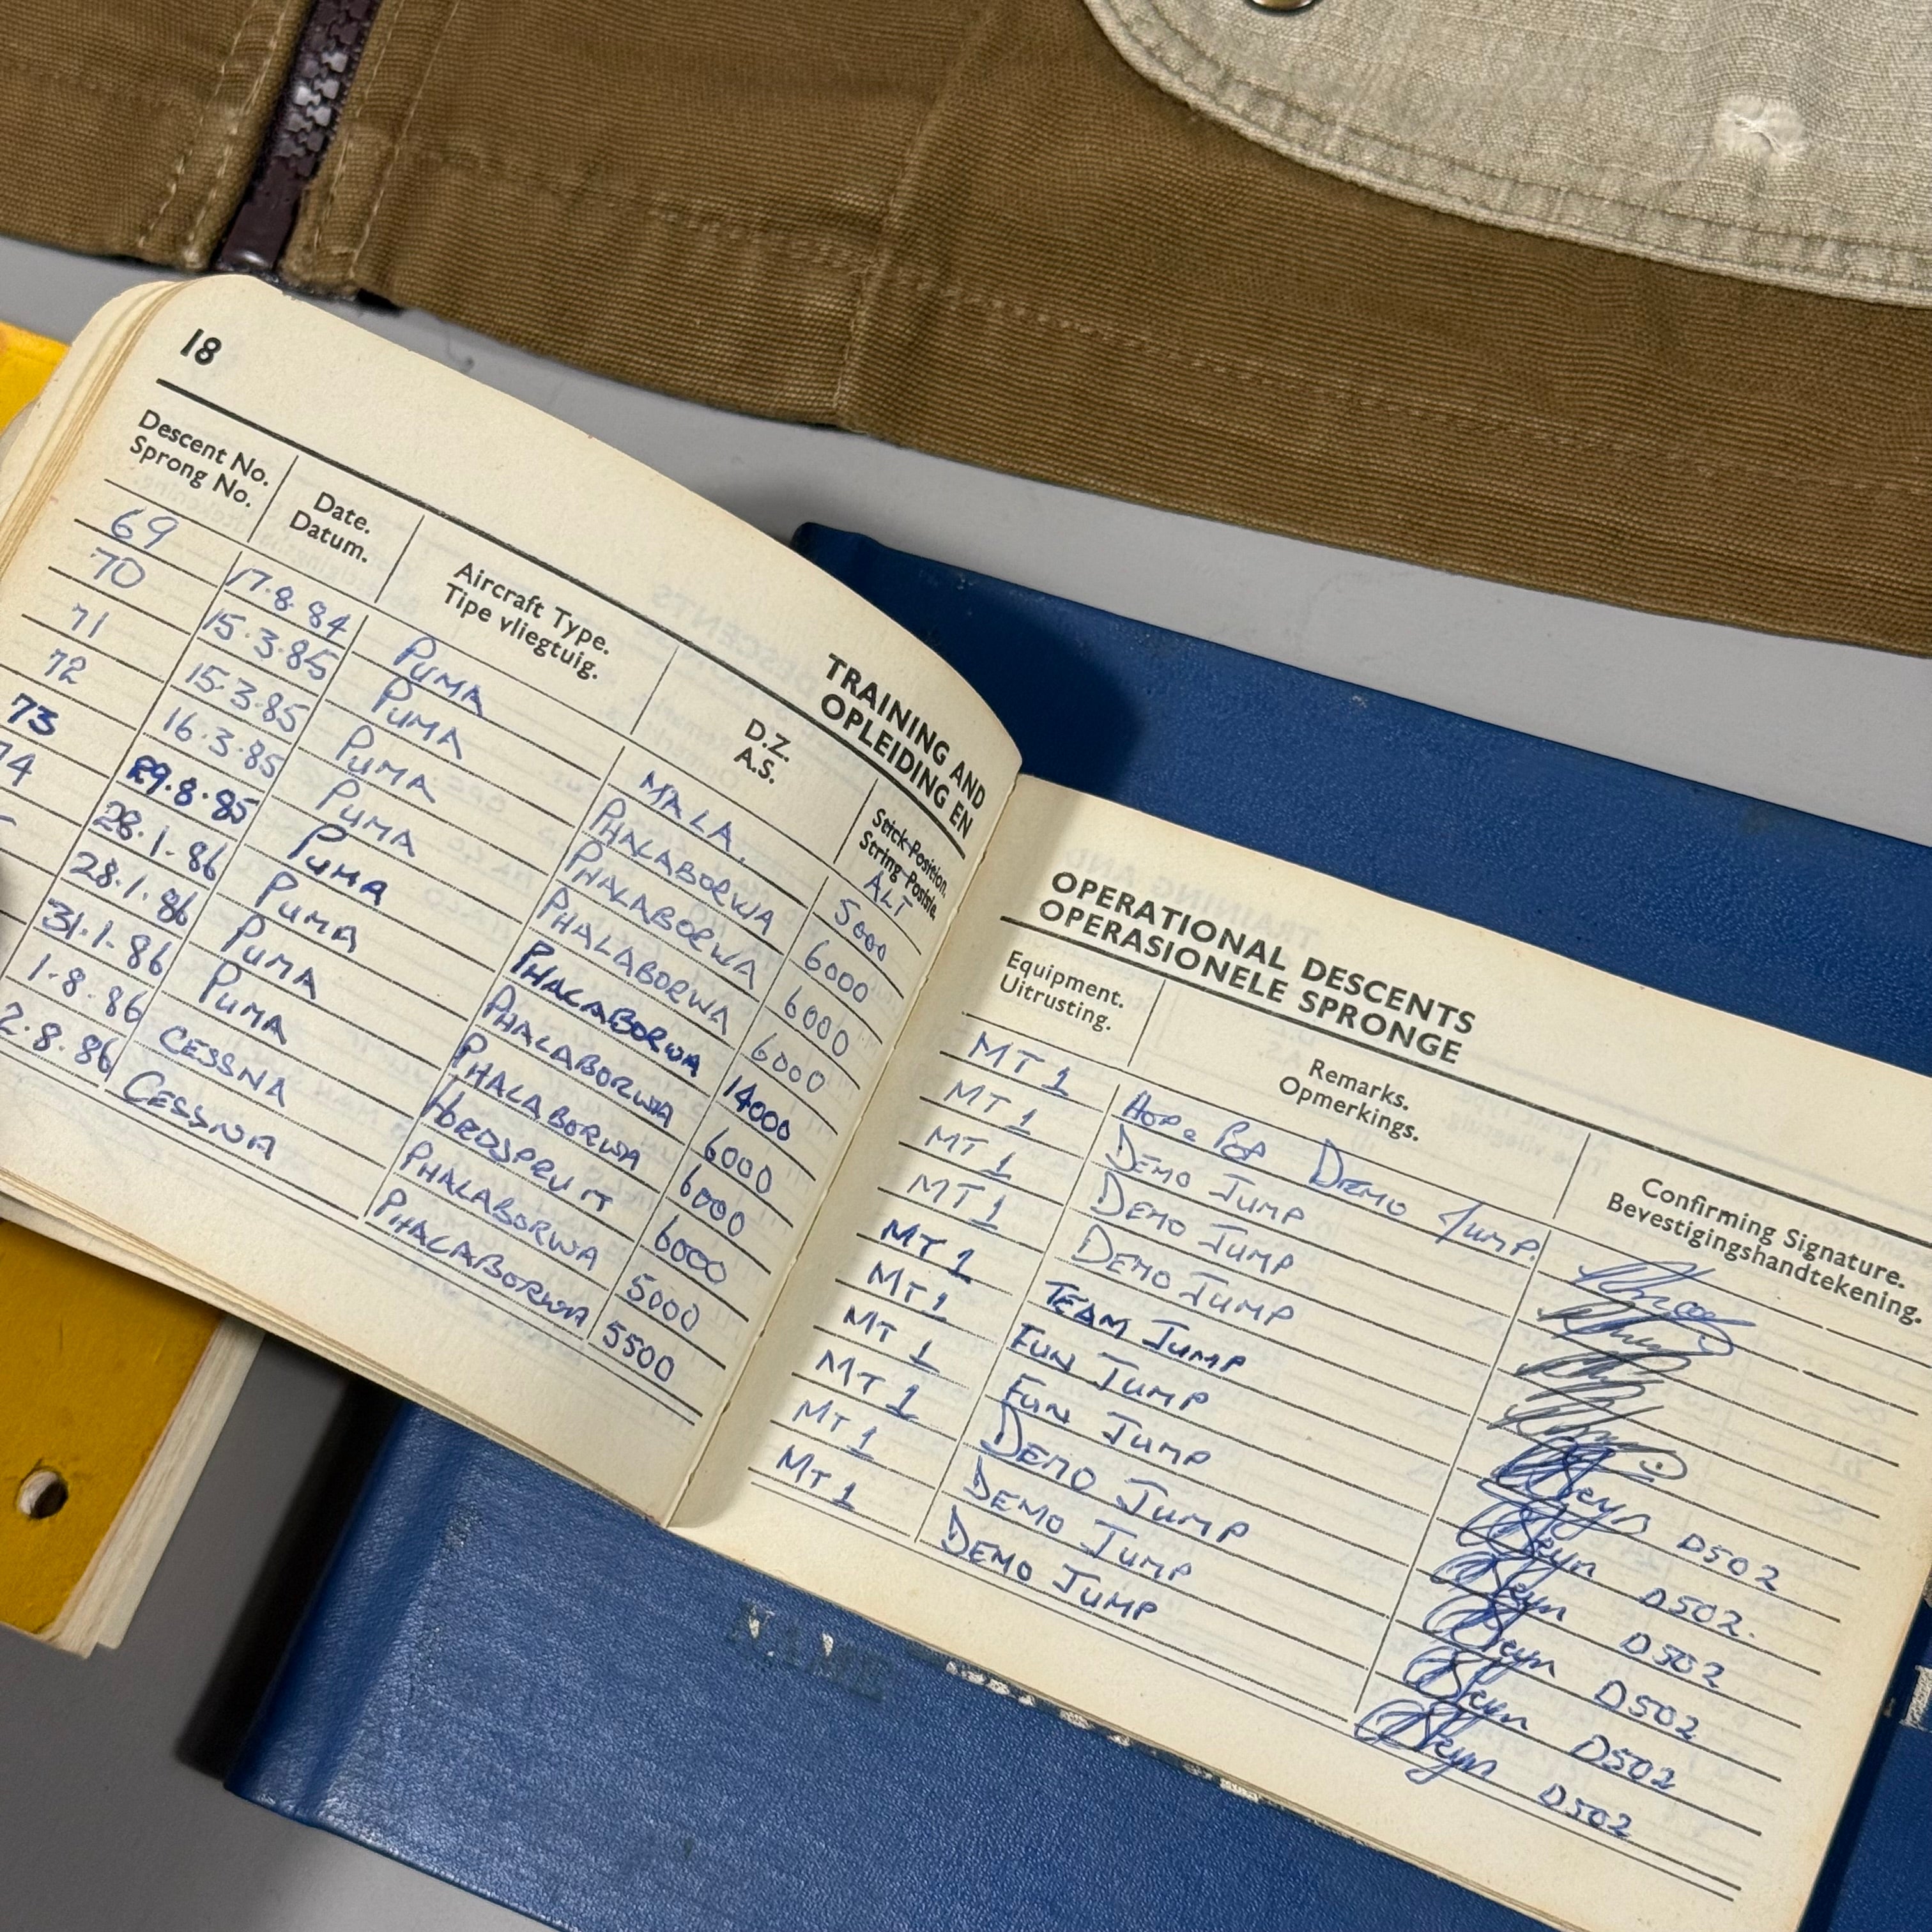 18
TRAINING AND
OPLEIDING EN
Descent No. Date. Aircraft Type. D.Z. Stick Position.
Sprong No. Datum. Tipe vliegtuig. A.S. String Posisie.
ALT
69 17.8.84 PUMA MALA. 5000
70 15.3.85 PUMA PHALABORWA 6000
71 15.3.85 PUMA PHALABORWA 6000
72 16.3.85 PUMA PHALABORWA 6000
73 29.8.85 PUMA PHALABORWA 14000
74 28.1.86 PUMA PHALABORWA 6000
28.1.86 PUMA PHALABORWA 6000
31.1.86 PUMA HOEDSPRUIT 6000
1.8.86 CESSNA PHALABORWA 5000
2.8.86 CESSNA PHALABORWA 5500
OPERATIONAL DESCENTS
OPERASIONELE SPRONGE
Equipment. Remarks. Confirming Signature.
Uitrusting. Opmerkings. Bevestigingshandtekening.
MT 1 HOP & POP DEMO JUMP.
MT 1 DEMO JUMP
MT 1 DEMO JUMP
MT 1 DEMO JUMP
MT 1 TEAM JUMP D502
MT 1 FUN JUMP D502.
MT 1 FUN JUMP D502
MT 1 DEMO JUMP D502
MT 1 DEMO JUMP D502
MT 1 DEMO JUMP D502
NAME